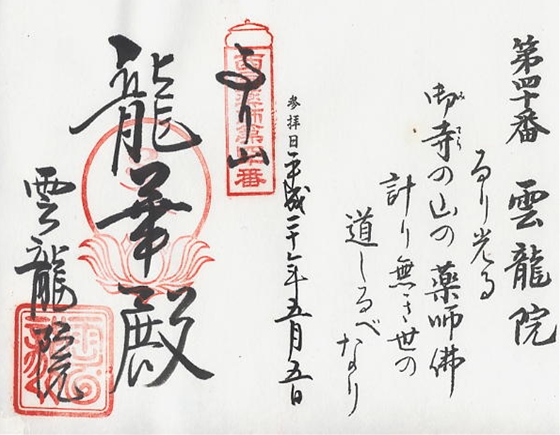 第四十番 雲龍院
るり光る
御寺の山の 薬師佛
計り無き世の
道しるべなり
参拝日 平成二十一年五月五日
西国薬師第四十番
るり山
龍華殿
雲龍院